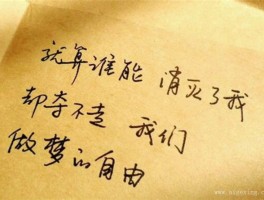 就算谁能 消灭了我
却夺不走 我们
做梦的自由